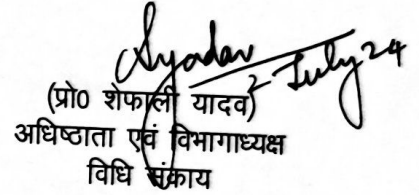 Syadav
2 July 24
(प्रो0 शेफाली यादव)
अधिष्ठाता एवं विभागाध्यक्ष
विधि संकाय